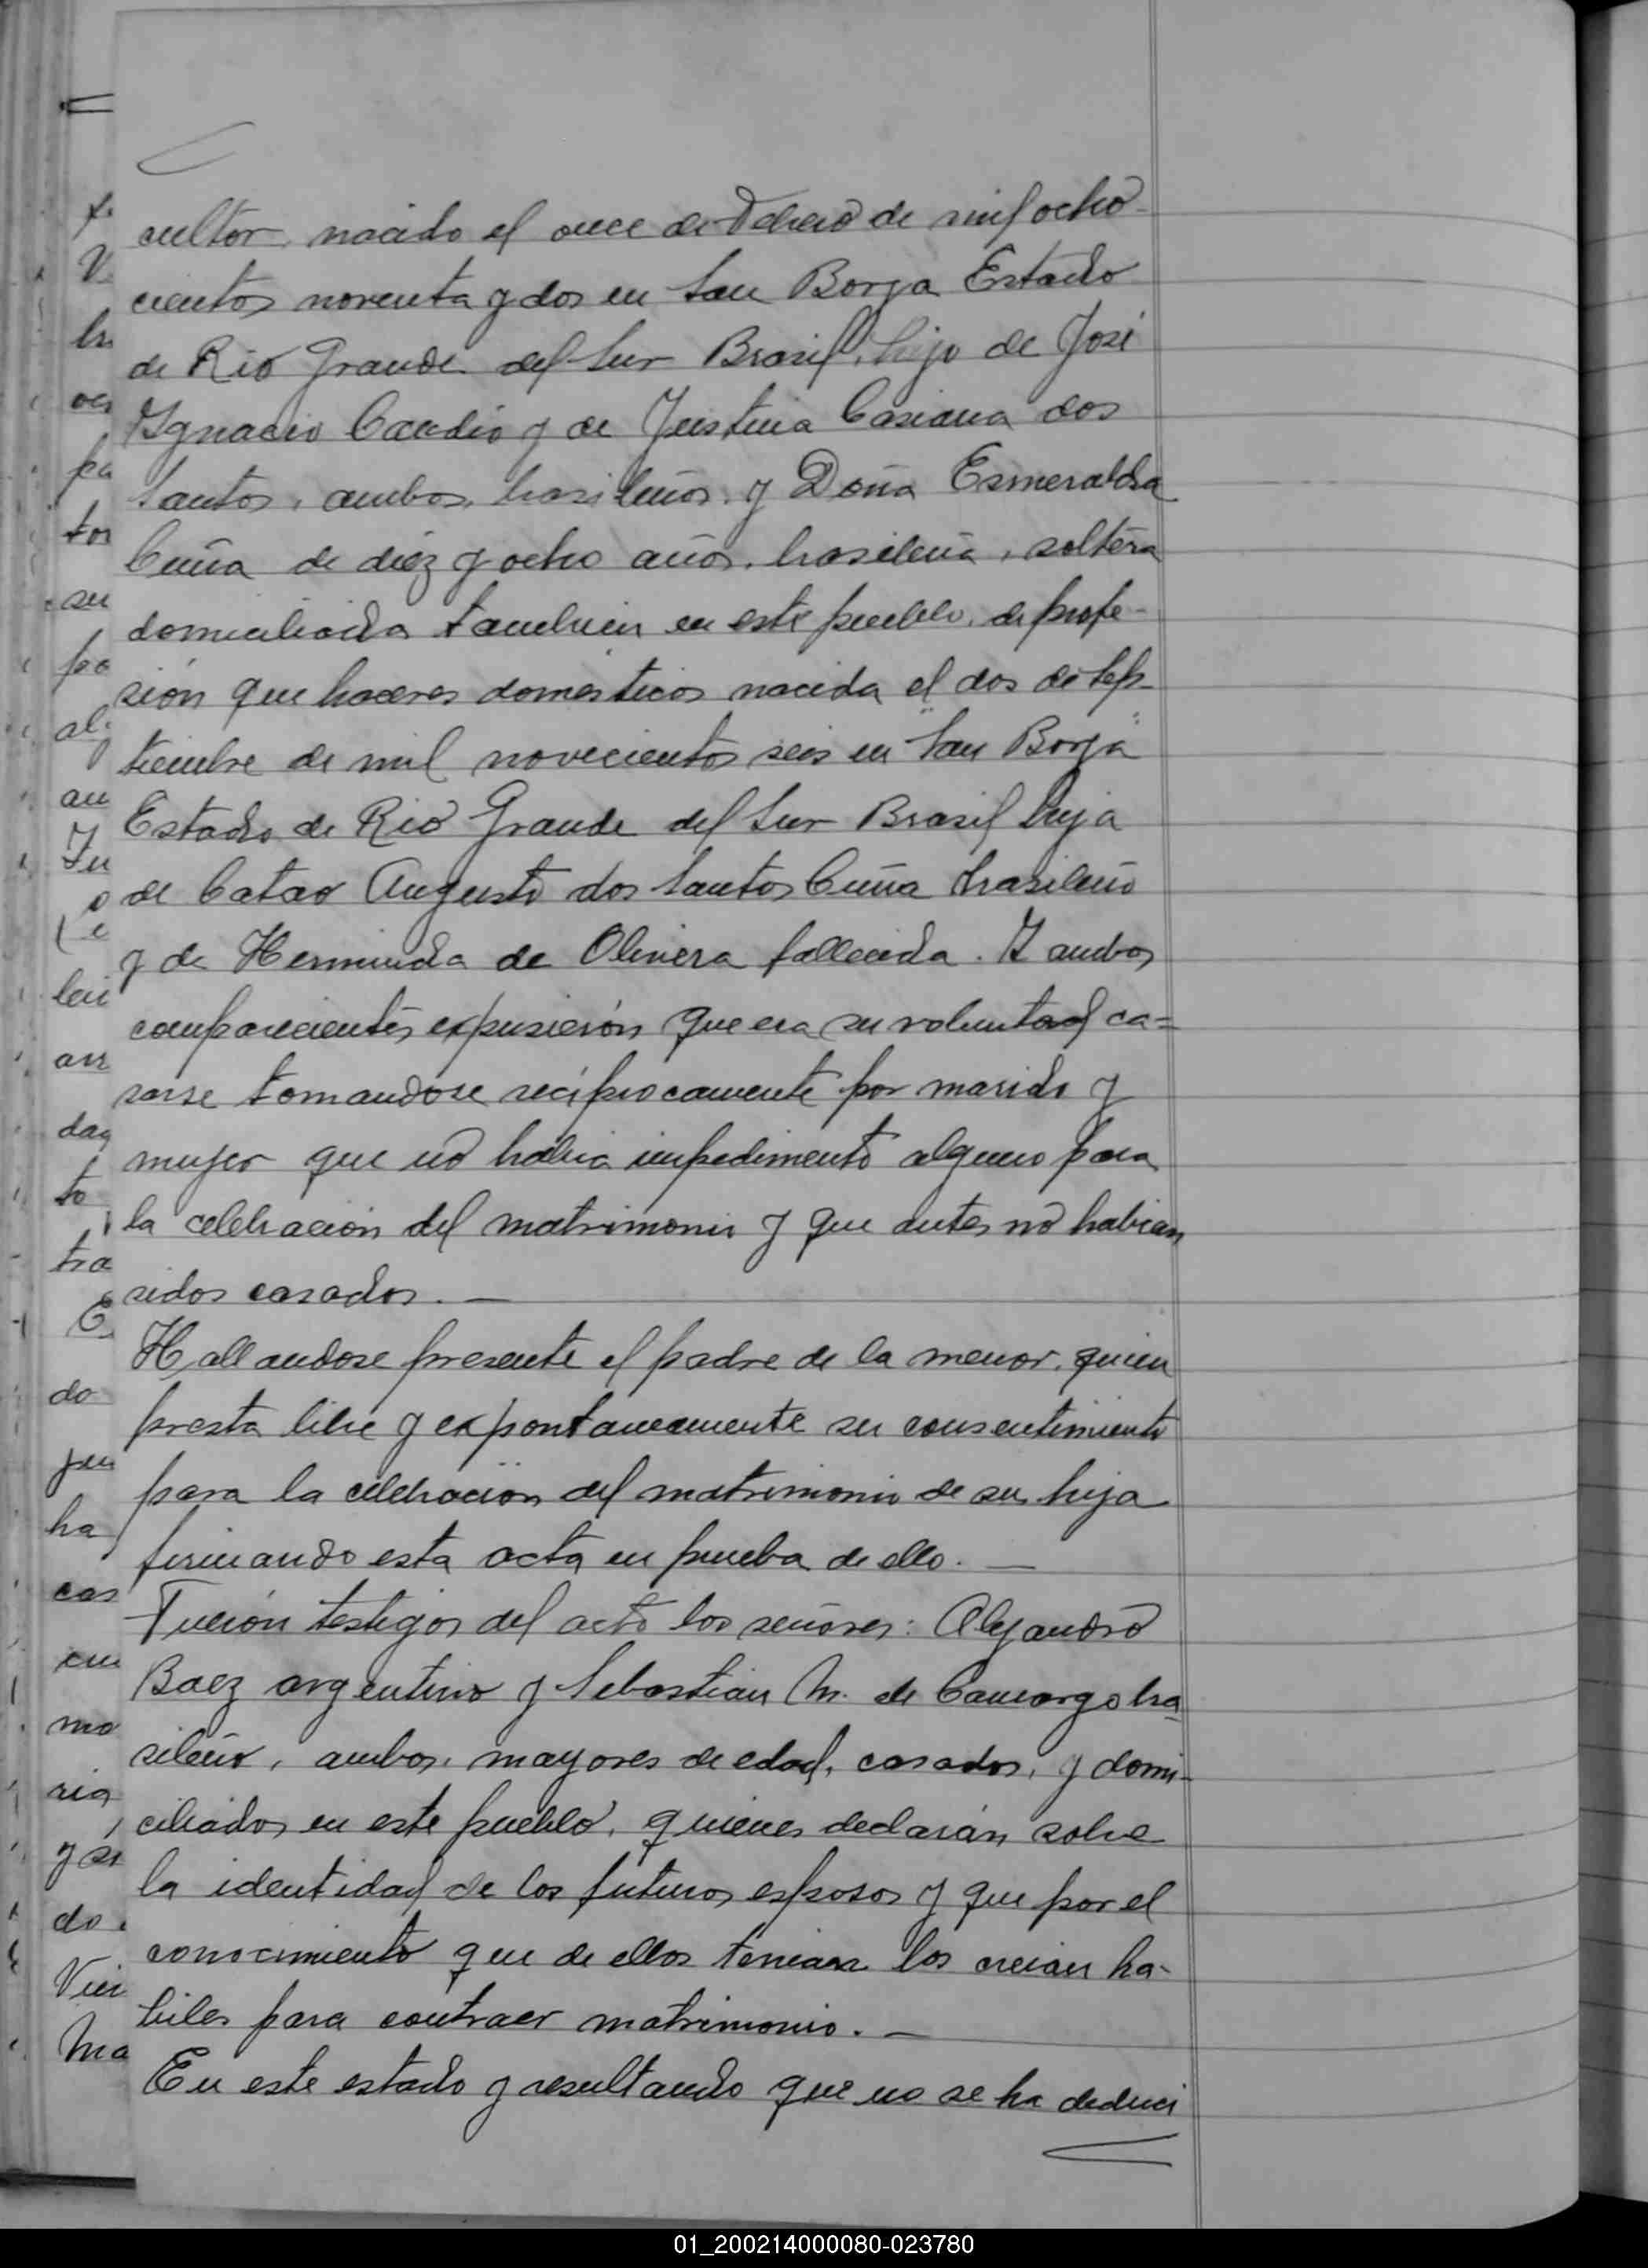 cultor, nacido el once de Febrero de mil ocho-
cientos noventa y dos en San Borja Estado
de Rio Grande del Sur Brasil, hijo de José
Ygnacio Candio y de Justina Casiana dos
Santos, ambos, brasileños, y Doña Esmeralda
Cuña de diez y ocho años, brasileña, soltera
domiciliada tambien en este pueblo, de profe-
sión que haceres domesticos nacida el dos de Sep-
tiembre de mil novecientos seis en "San Borja"
Estado de Rio Grande del Sur Brasil hija
de Catao Augusto dos Santos Cuña brasileño
y de Herminda de Olivera fallecida. Y ambos
comparecientes expusierón que era su voluntad ca=
sarse tomandose reciprocamente por marido y
mujer que no habia impedimento alguno para
la celebración del matrimonio y que antes no habian
sidos casados. —
Hallandose presente el padre de la menor, quien
presta libre y expontaneamente su consentimiento
para la celebracion del matrimonio de su hija
firmando esta acta en prueba de ello. —
Fuerón testigos del acto los señores: Alejandro
Baez argentino y Sebastian M. de Camargo bra
sileño, ambos, mayores de edad, casados, y domi-
ciliados en este pueblo, quienes declarán sobre
la identidad de los futuros esposos y que por el
conocimiento que de ellos tenian los creian ha-
biles para contraer matrimonio. —
En este estado y resultando que no se ha deduci
01_200214000080-023780